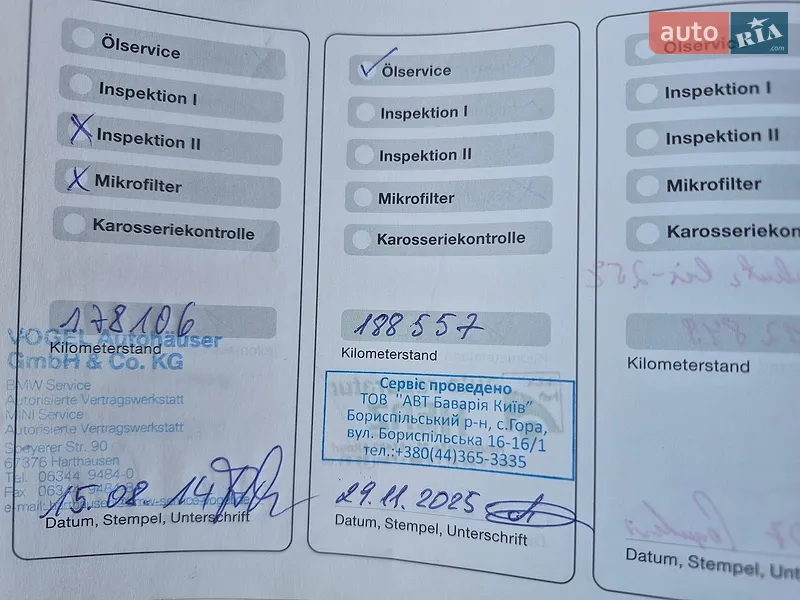 Ölservice
Inspektion I
X Inspektion II
X Mikrofilter
Karosseriekontrolle
178106
Kilometerstand
VOGEL Autohäuser
GmbH & Co. KG
BMW Service
Autorisierte Vertragswerkstatt
MINI Service
Autorisierte Vertragswerkstatt
Speyerer Str. 90
67376 Harthausen
Tel. 06344 9484-0
Fax
e-mail:
15.08.14
Datum, Stempel, Unterschrift
✓ Ölservice
Inspektion I
Inspektion II
Mikrofilter
Karosseriekontrolle
188557
Kilometerstand
Сервіс проведено
ТОВ "АВТ Баварія Київ"
Бориспільський р-н, с.Гора,
вул. Бориспільська 16-16/1
тел.:+380(44)365-3335
29.11.2025
Datum, Stempel, Unterschrift
auto RIA .com
Ölservic
Inspektion I
Inspektion II
Mikrofilter
Karosseriekon
Kilometerstand
Datum, Stempel, Unt